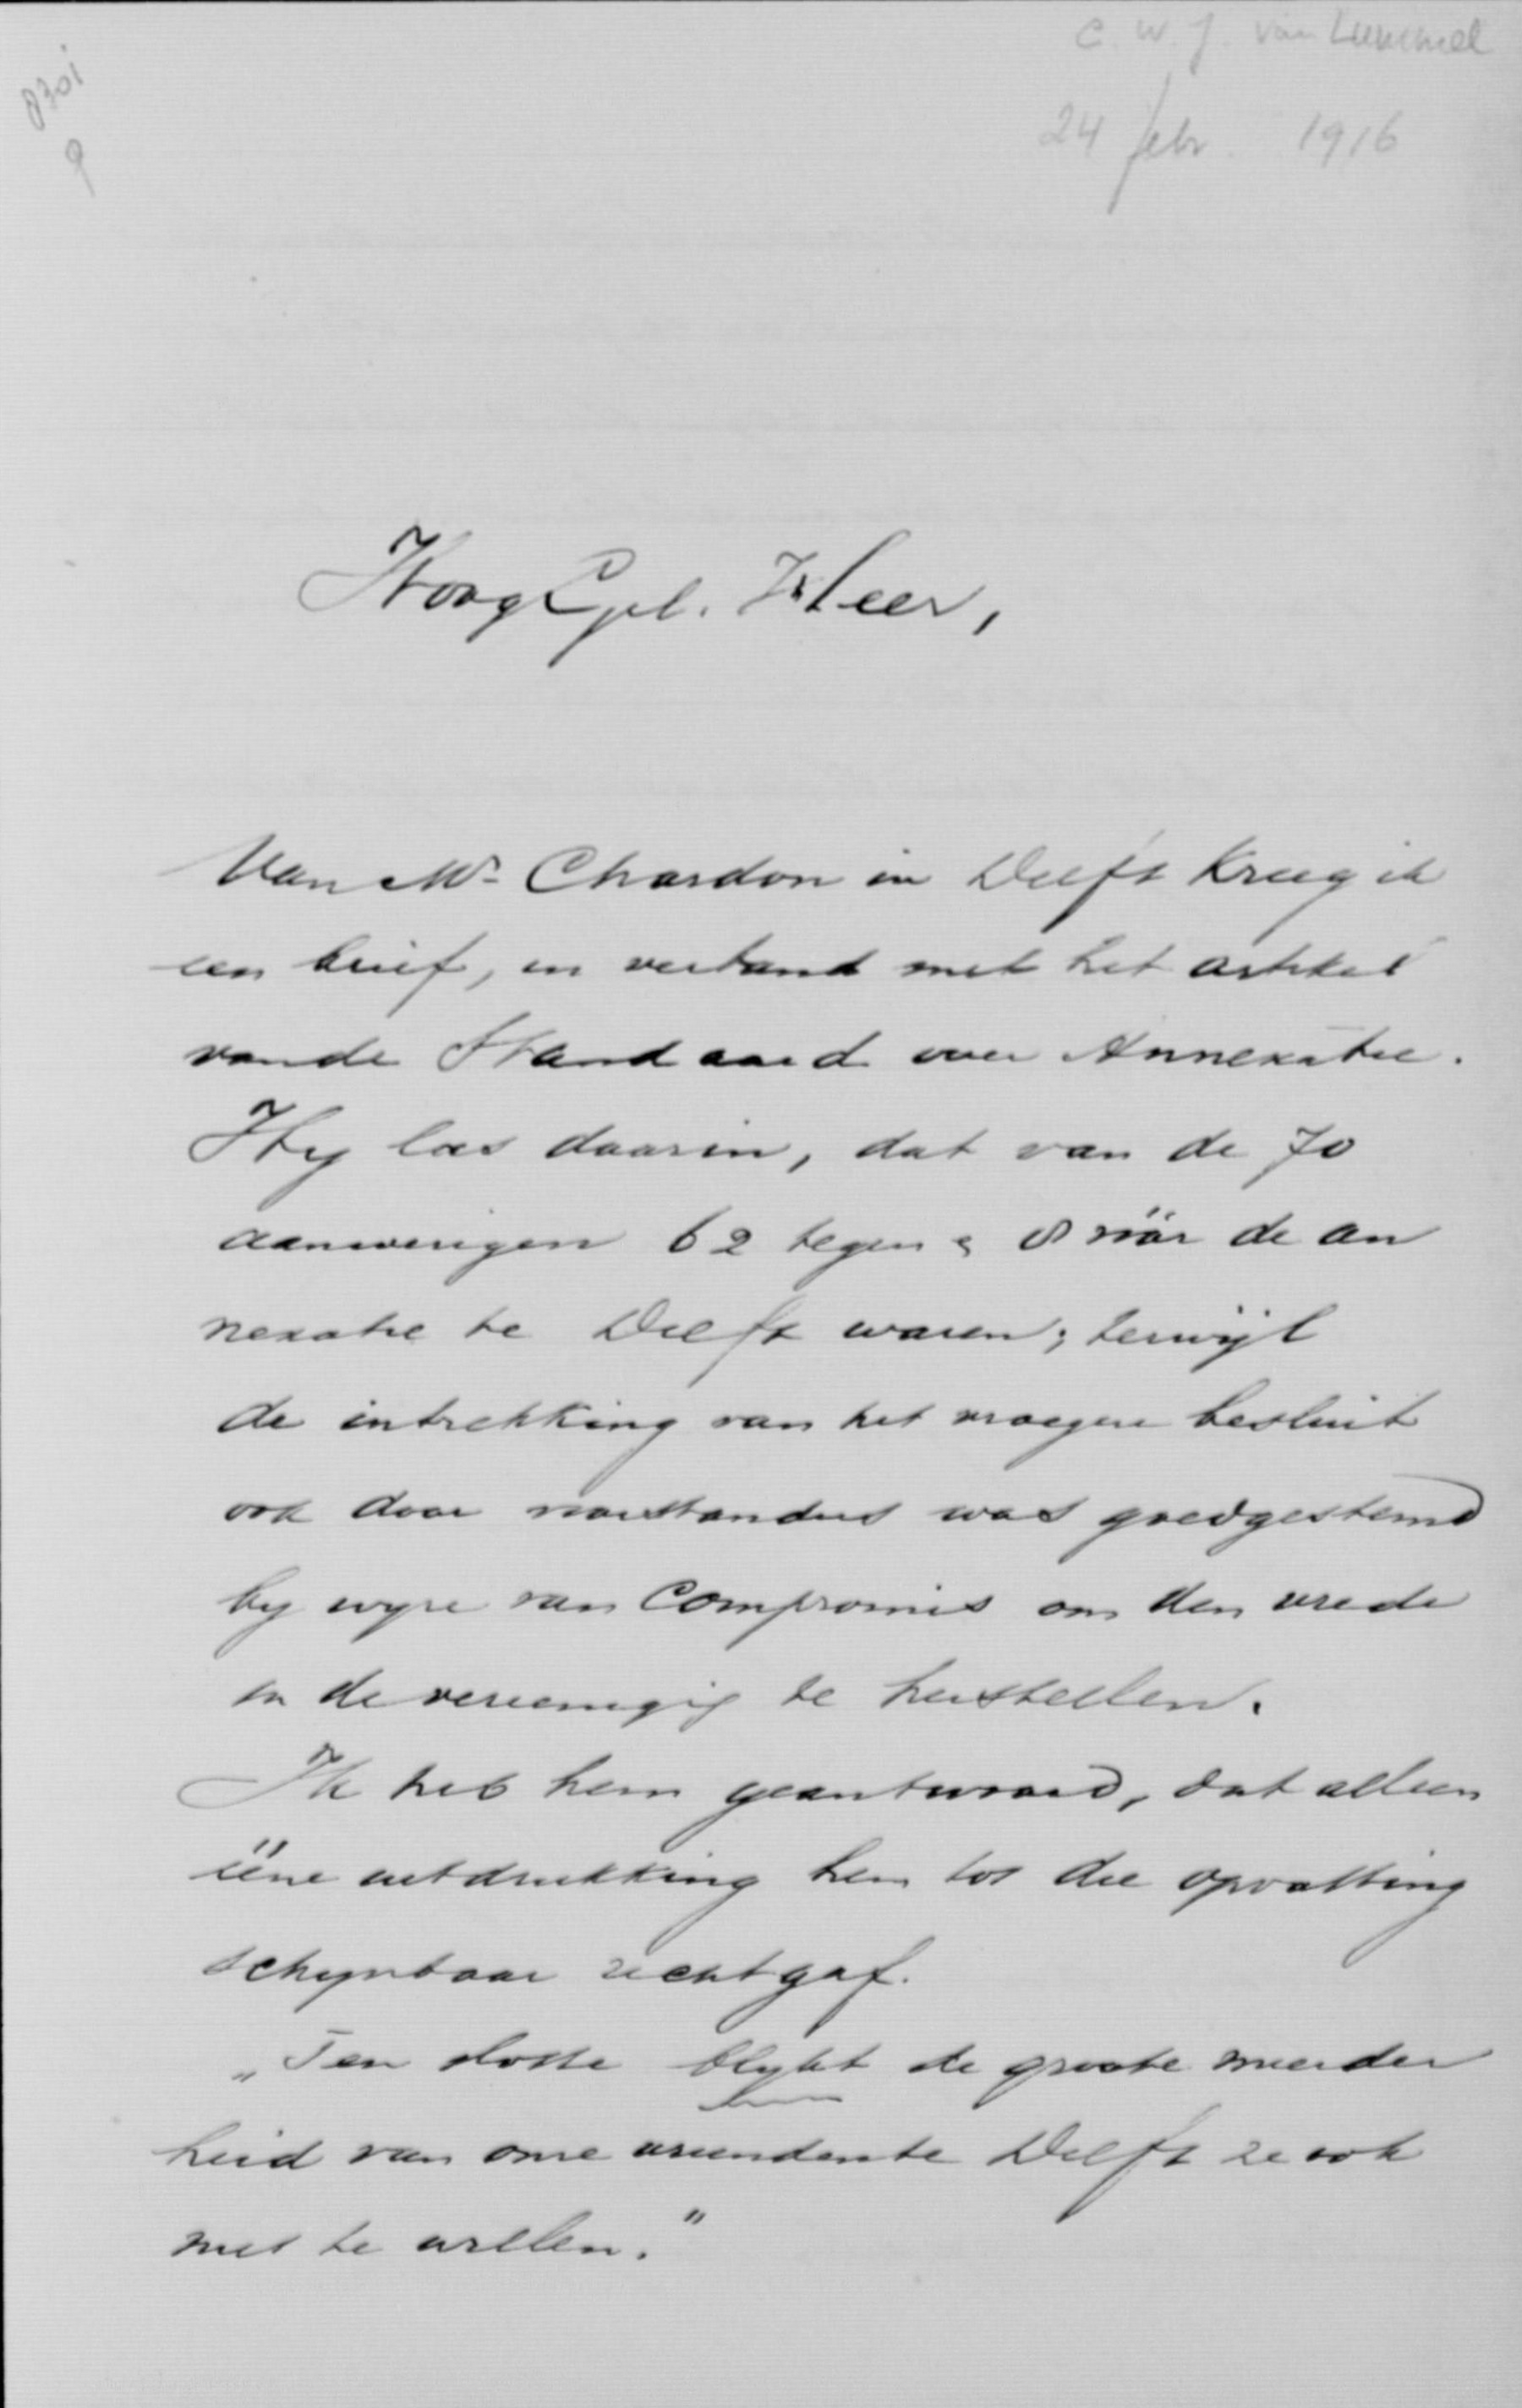 C. W. J. van Lummel
8301
9
24 febr. 1916
HoogEgel. Heer,
Van Mr Chardon in Delft kreeg ik
een brief, in verband met het artikel
van de Standaard over Annexatie.
Hy las daarin, dat van de 70
aanwezigen 62 tegen & 8 vóór de an
nexatie te Delft waren; terwijl
de intrekking van het vroegere besluit
ook door voorstanders was goedgestemd
by wyze van Compromis om den vrede
in de vereeniging te herstellen.
Ik heb hem geantwoord, dat alleen
ééne uitdrukking hem tot die opvatting
schynbaar recht gaf.
„Ten slotte blykt de groote meerder
heid van onze vrienden te Delft ze ook
niet te willen."